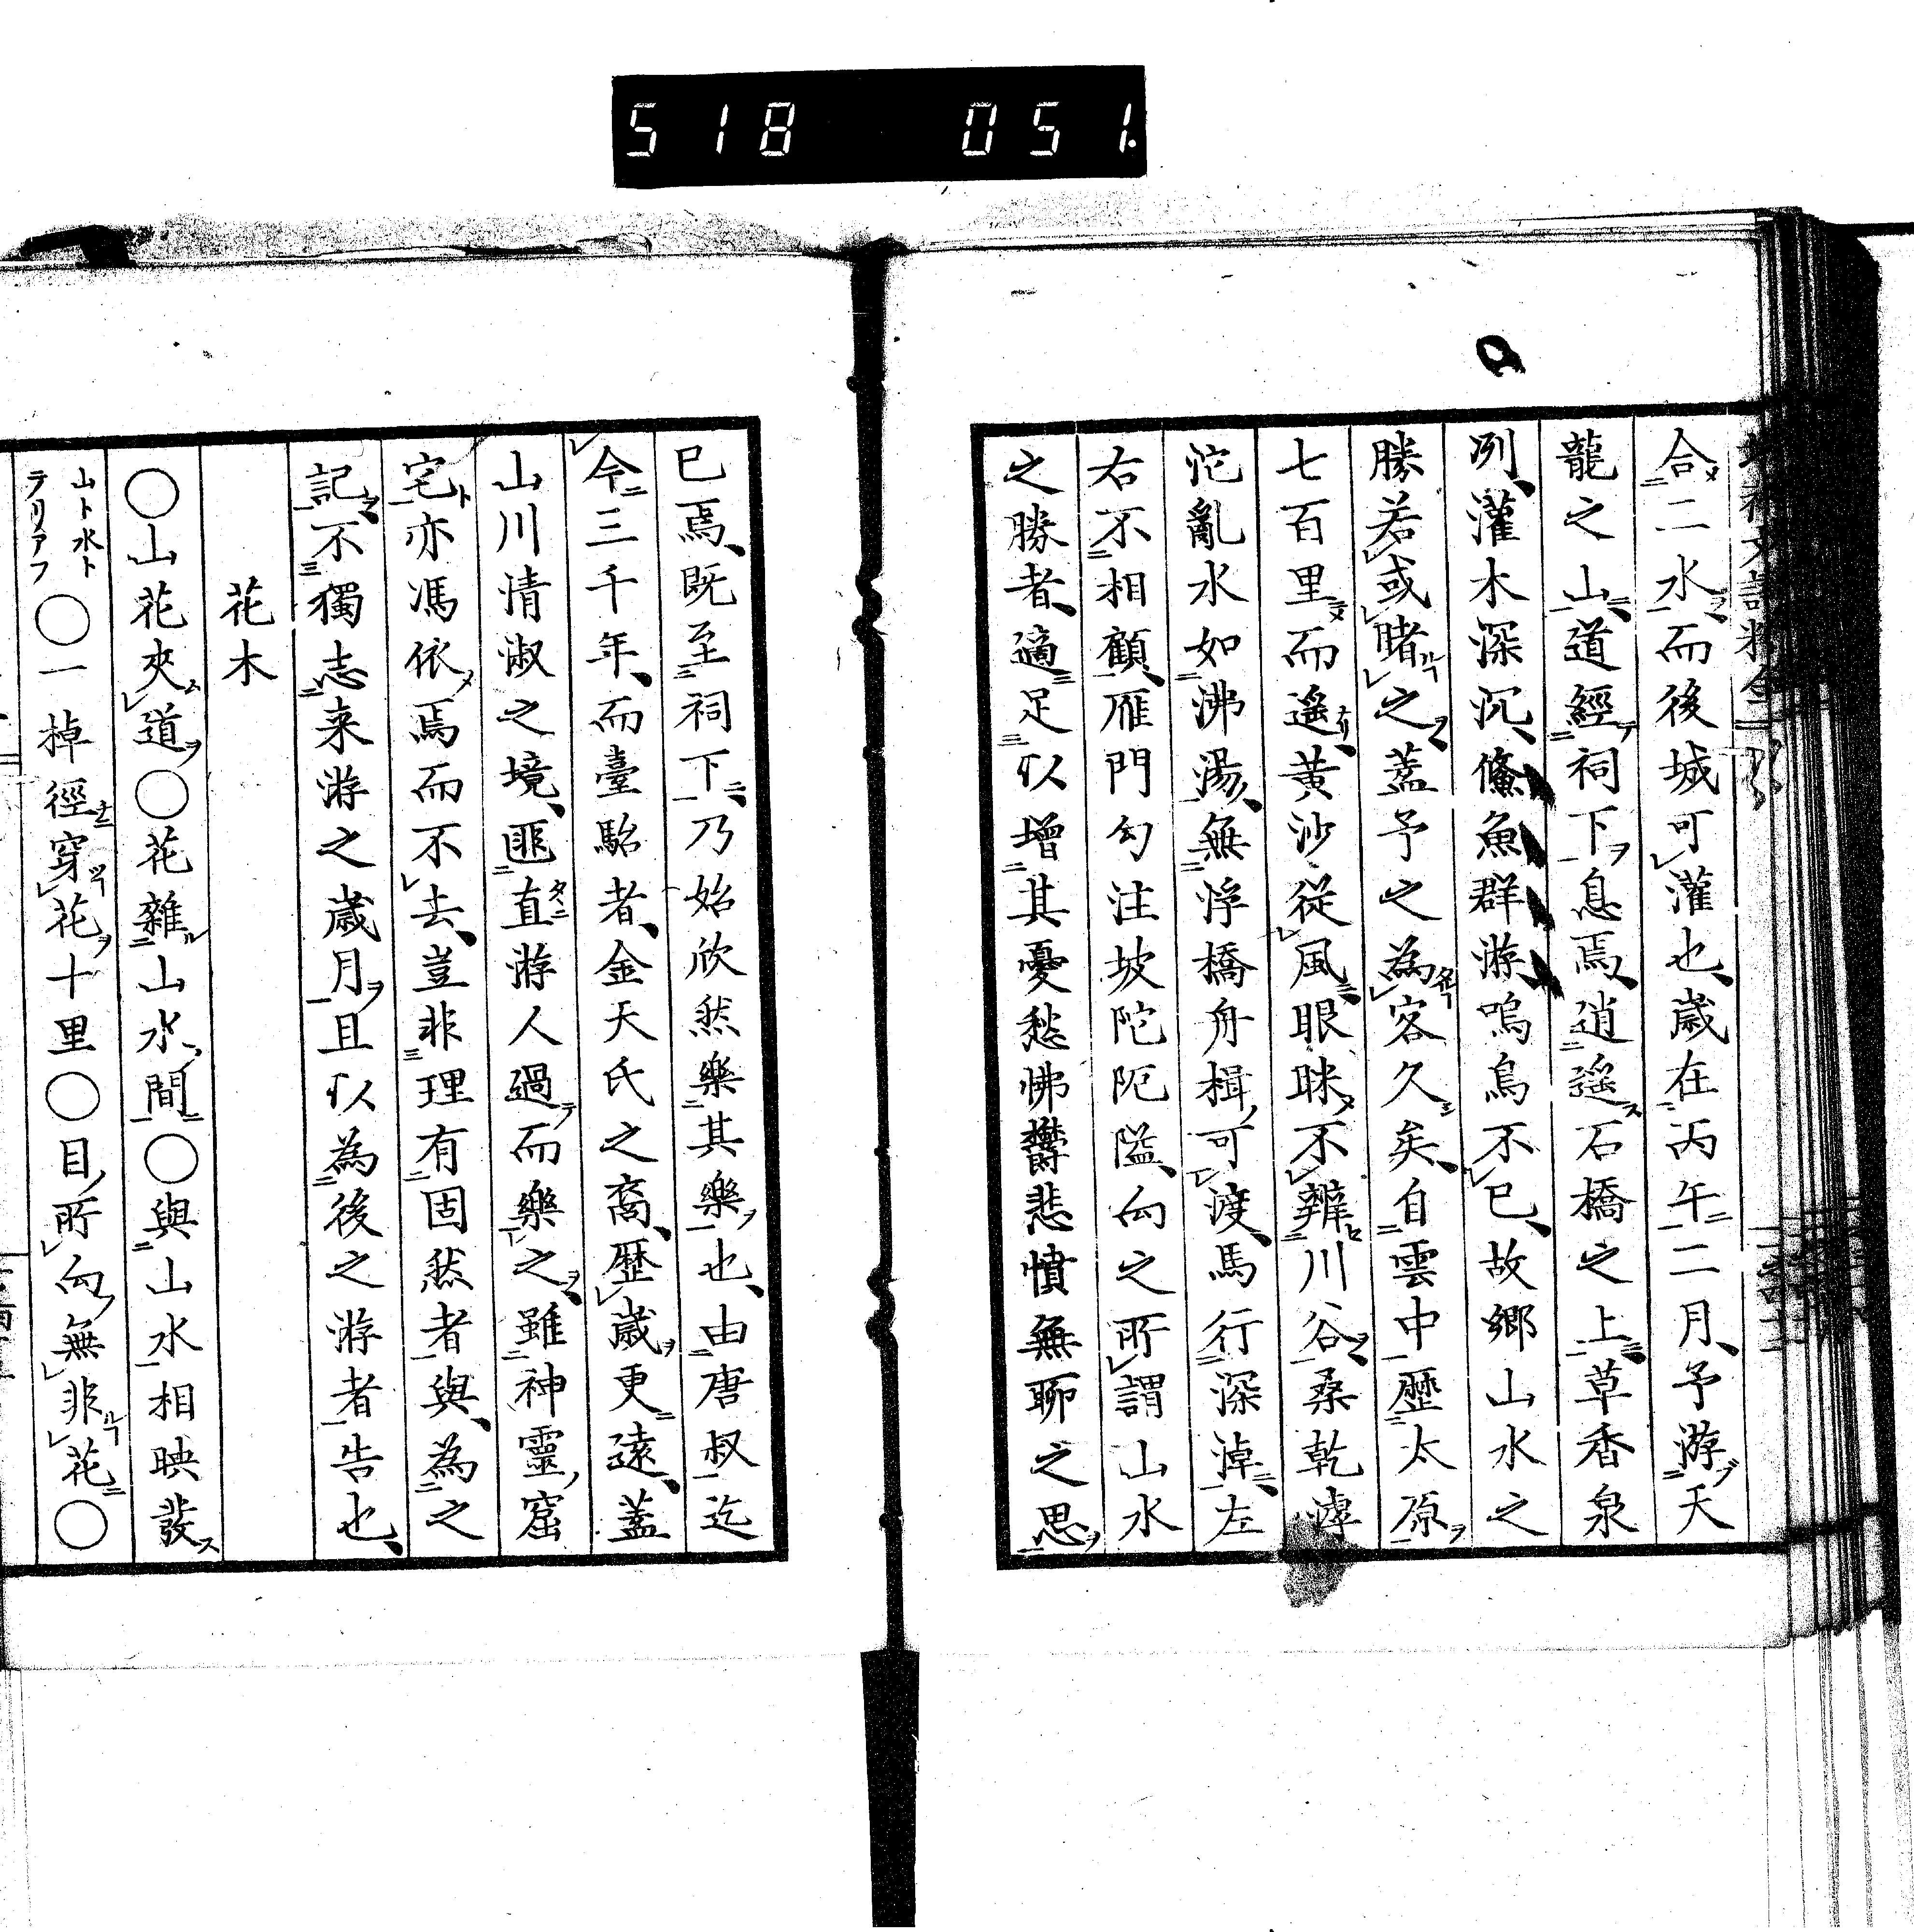 518 051.
合二水而後城可灌也歲在丙午二月予游天
龍之山道經祠下息焉逍遙石橋之上草香泉
冽灌木深沉鯈魚群游鳴鳥不已故鄉山水之
勝若或睹之蓋予之為客久矣自雲中歷太原
七百里而遙黃沙從風眼眯不辨川谷桑乾滹
沱亂水如沸湯無浮橋舟楫可渡馬行深淖左
右不相顧雁門勾注坡陀阨隘向之所謂山水
之勝者適足以增其憂愁怫鬱悲憤無聊之思
已焉既至祠下乃始欣然樂其樂也由唐叔迄
今三千年而臺駘者金天氏之裔歷歲更遠蓋
山川清淑之境匪直游人過而樂之雖神靈窟
宅亦馮依焉而不去豈非理有固然者與為之
記不獨志来游之歲月且以為後之游者告也
花木
〇山花夾道〇花雜山水間〇與山水相映發
山ト水ト
テリアフ
〇一棹徑穿花十里〇目所向無非花〇